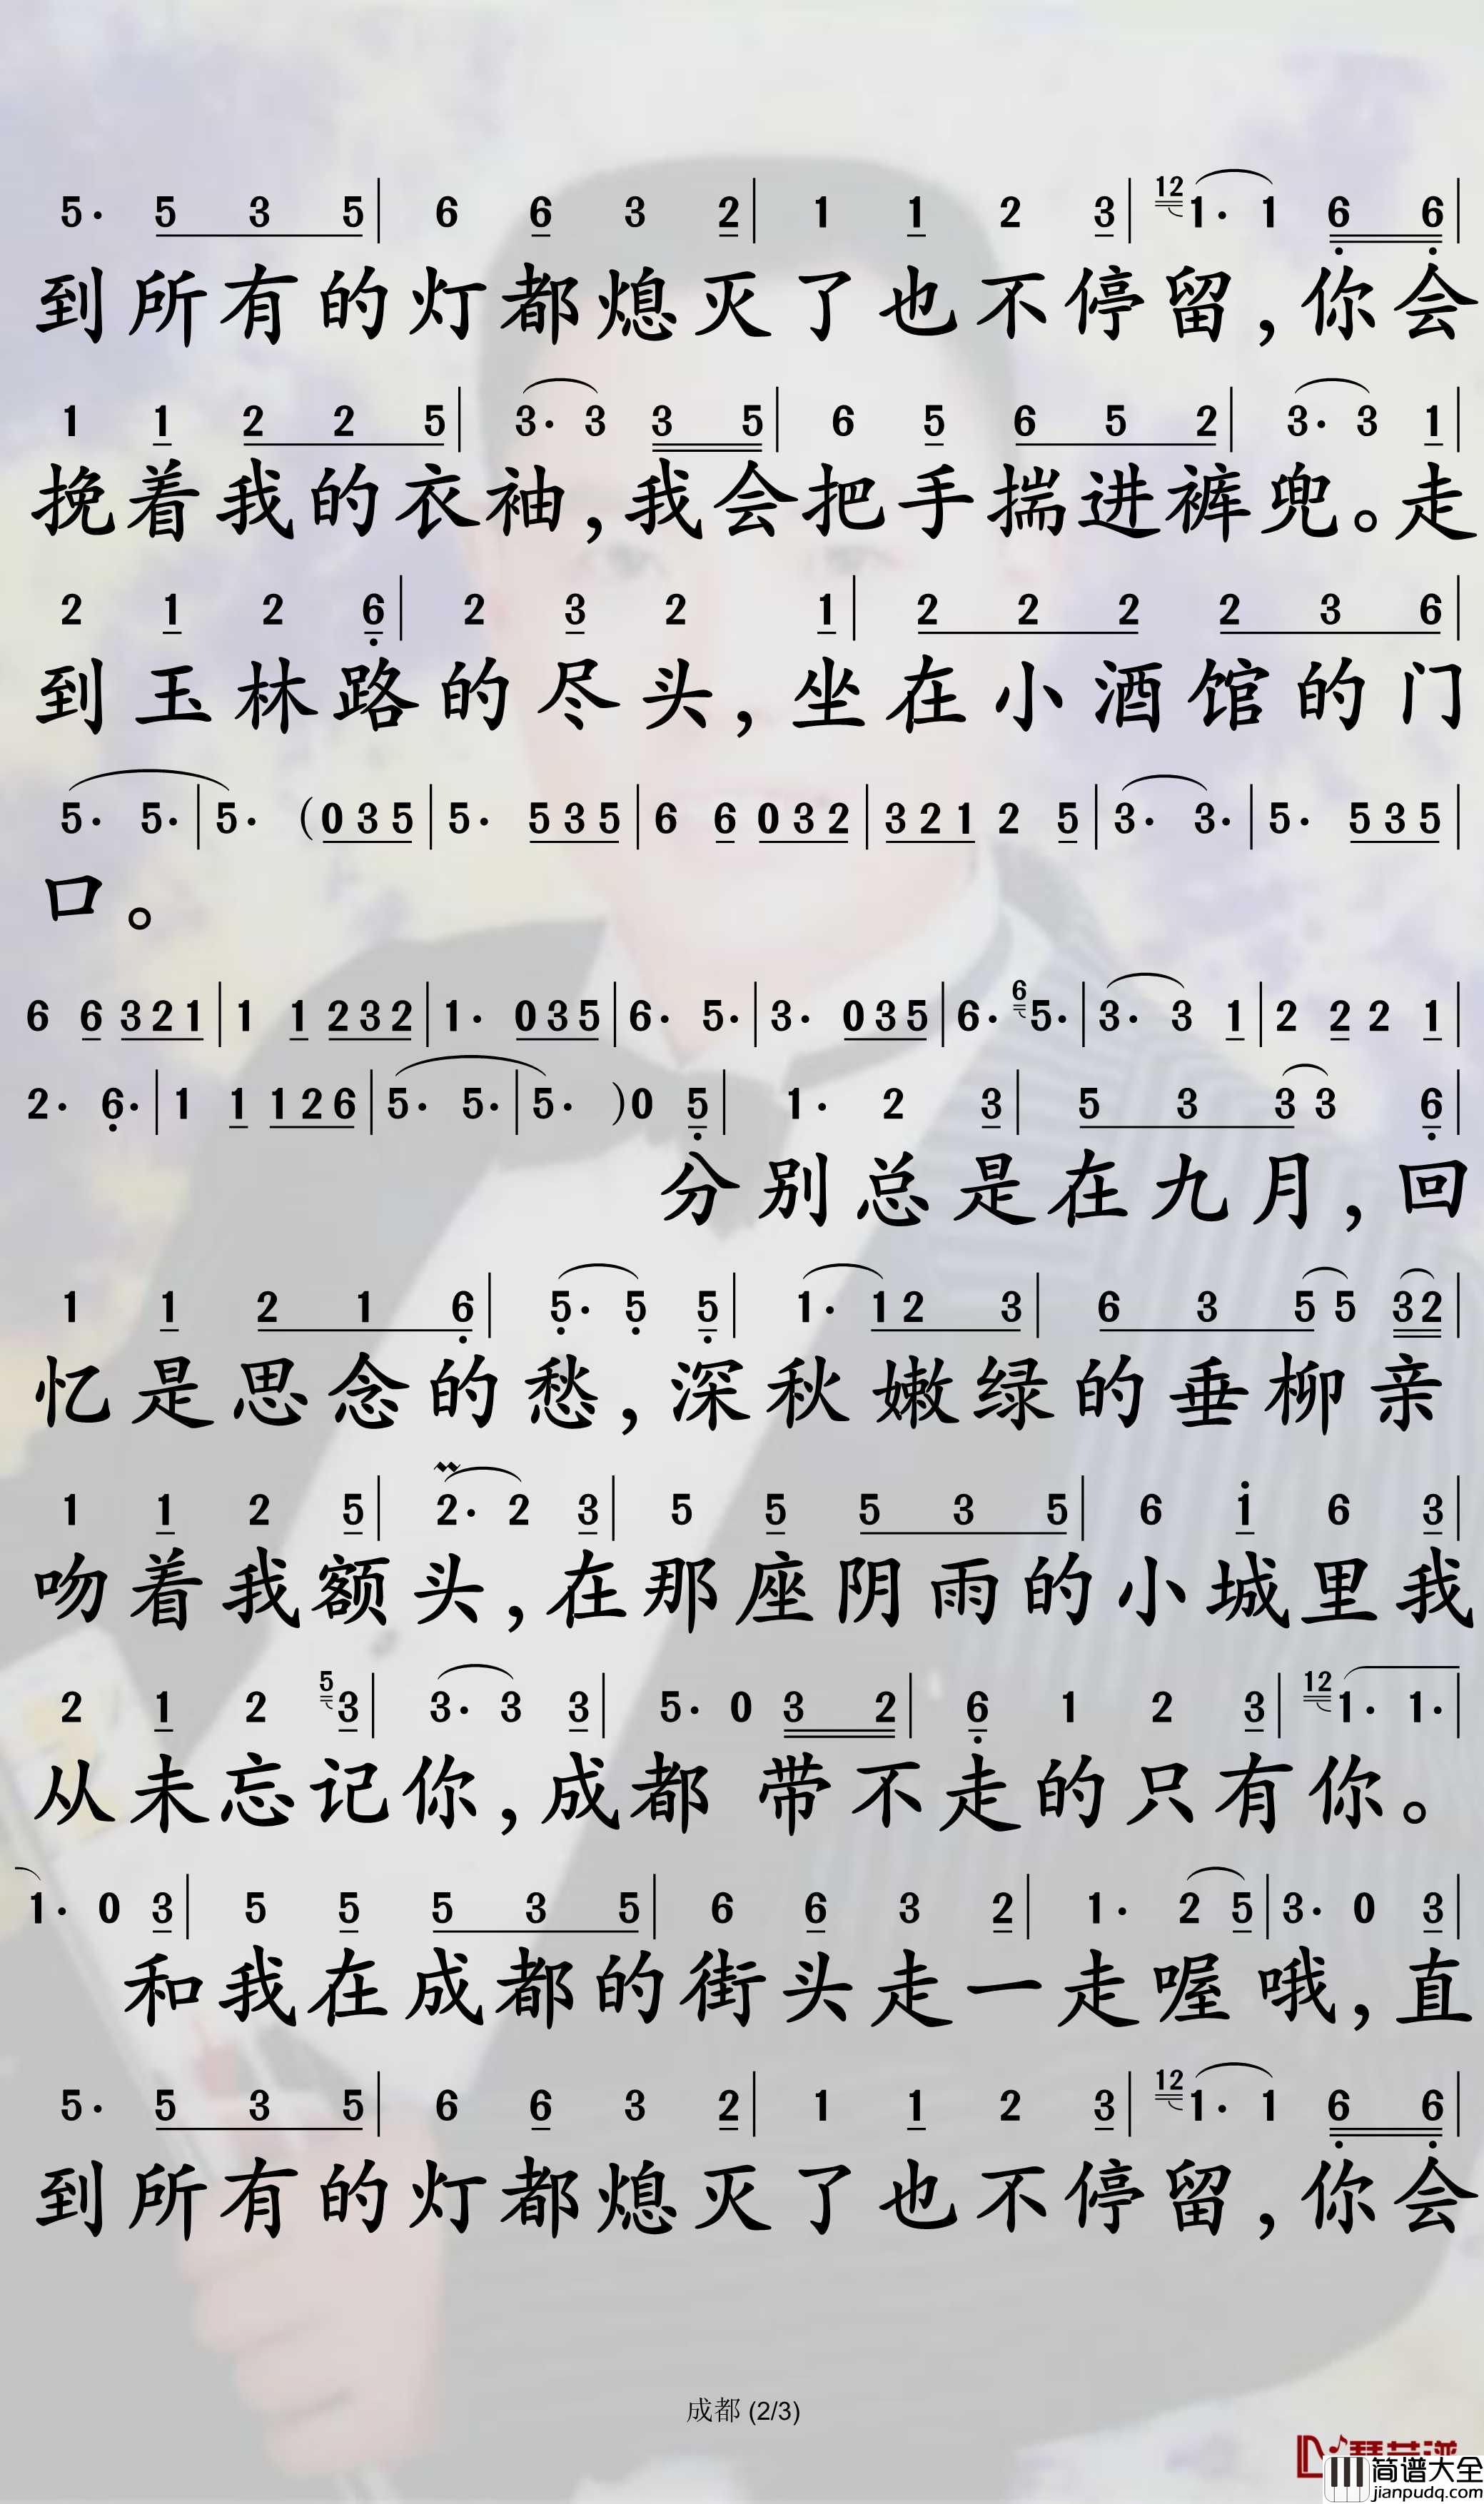 5· 5 3 5 | 6 6 3 2 | 1 1 2 3 | 12 1· 1 6 6 |
到所有的灯都熄灭了也不停留,你会
1 1 2 2 5 | 3· 3 3 5 | 6 5 6 5 2 | 3· 3 1 |
挽着我的衣袖,我会把手揣进裤兜。走
2 1 2 6 | 2 3 2 1 | 2 2 2 2 3 6 |
到玉林路的尽头,坐在小酒馆的门
5· 5· | 5· (0 3 5 | 5· 5 3 5 | 6 6 0 3 2 | 3 2 1 2 5 | 3· 3· | 5· 5 3 5 |
口。
6 6 3 2 1 | 1 1 2 3 2 | 1· 0 3 5 | 6· 5· | 3· 0 3 5 | 6· 6 5· | 3· 3 1 | 2 2 2 1 |
2· 6· | 1 1 1 2 6 | 5· 5· | 5· )0 5 | 1· 2 3 | 5 3 3 3 6 |
分别总是在九月,回
1 1 2 1 6 | 5· 5 5 | 1· 1 2 3 | 6 3 5 5 3 2 |
忆是思念的愁,深秋嫩绿的垂柳亲
1 1 2 5 | 2· 2 3 | 5 5 5 3 5 | 6 1 6 3 |
吻着我额头,在那座阴雨的小城里我
2 1 2 5 3 | 3· 3 3 | 5· 0 3 2 | 6 1 2 3 | 12 1· 1· |
从未忘记你,成都 带不走的只有你。
1· 0 3 | 5 5 5 3 5 | 6 6 3 2 | 1· 2 5 | 3· 0 3 |
和我在成都的街头走一走喔哦,直
5· 5 3 5 | 6 6 3 2 | 1 1 2 3 | 12 1· 1 6 6 |
到所有的灯都熄灭了也不停留,你会
成都 (2/3)
简谱大全
jianpudq.com